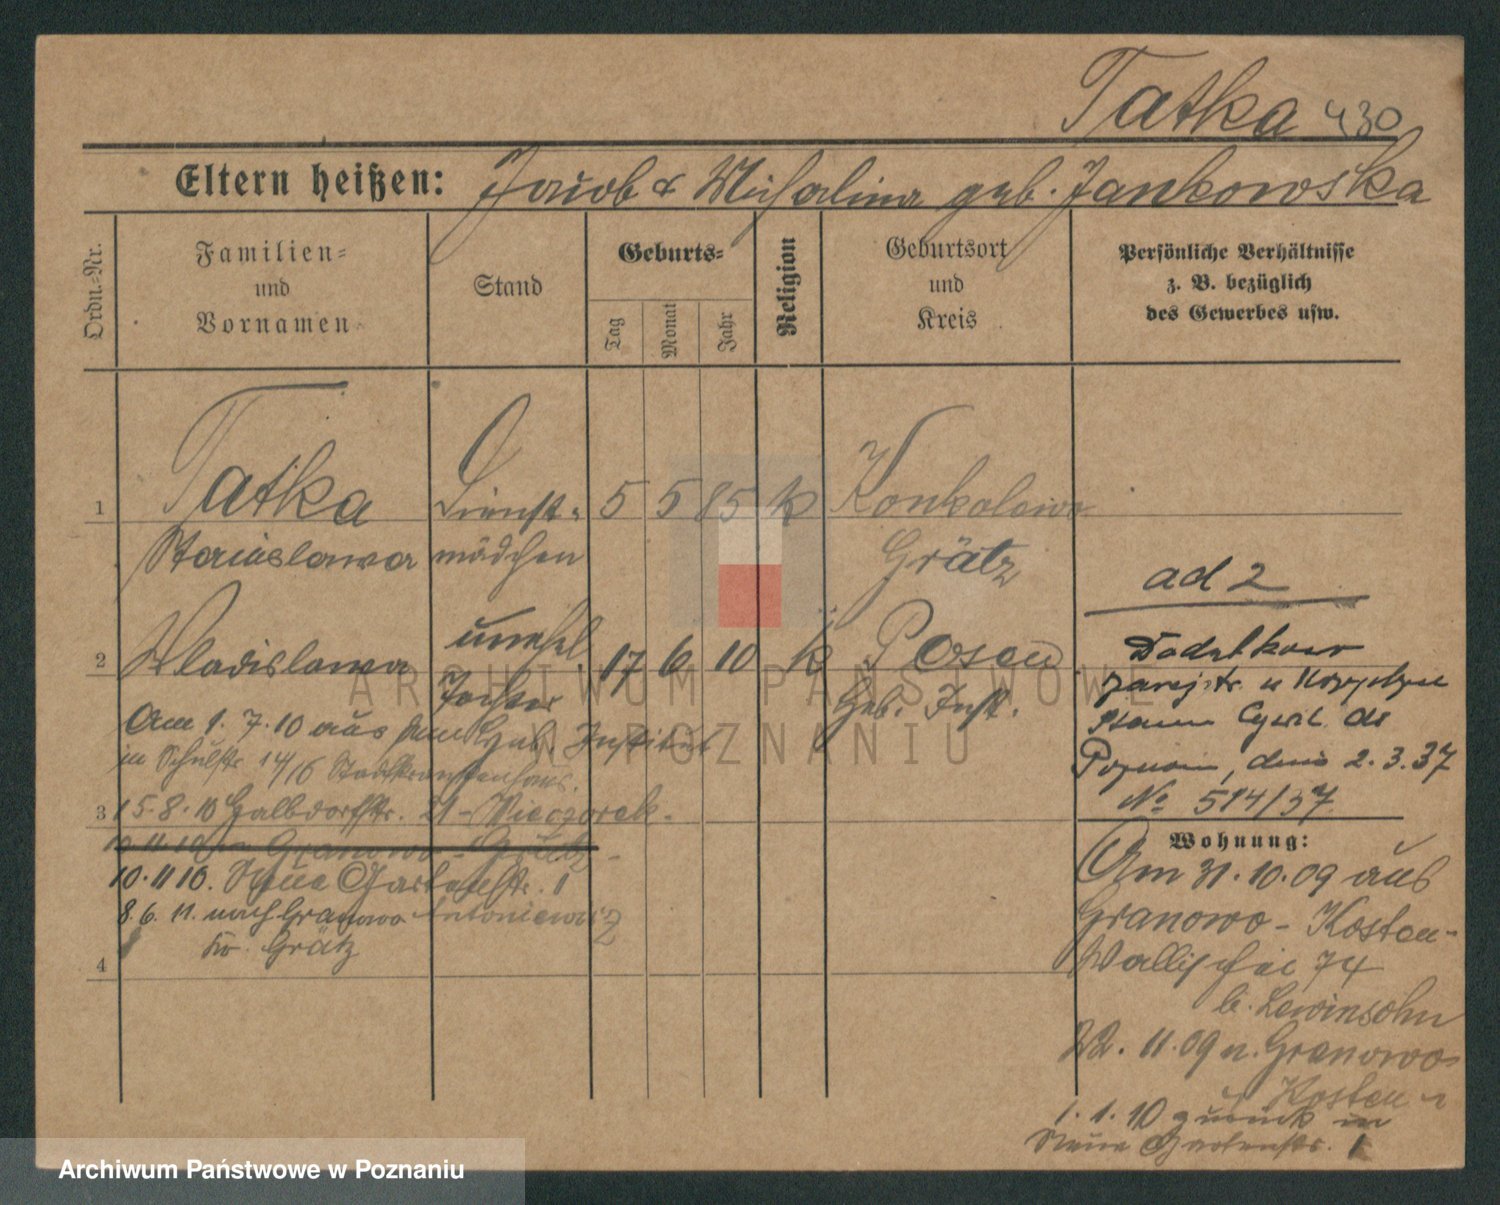 Tatka 430
Eltern heißen: Jacob & Michalina geb. Jankowska
Ordn.-Nr.
Familien-
und
Vornamen
Stand
Geburts-
Tag
Monat
Jahr
Religion
Geburtsort
und
Kreis
Persönliche Verhältnisse
z. B. bezüglich
des Gewerbes usw.
1 Tatka Dienst- 5 5 85 k Konkolewo
Stanislawa mädchen Grätz
2 Wladislawa unehel. 17 6 10 k Posen
Tochter Geb. Inst.
Am 9. 7. 10 aus Geb. Institut
in Schulstr 14/16 Stadtkrankenhaus.
3 15.8.10 Halbdorfstr. 21 - Wieczorek -
10.11.10 Granowo - Grätz -
10.11 10. Neue Gartenstr. 1
8.6. 11. nach Granowo Antoniewicz
Kr. Grätz
4
ad 2
Stanu Cywil. dn
Poznań, dnia 2.3.37
№ 514/37
Wohnung:
Am 31.10.09 aus
Granowo - Kosten -
Wallischei 74
b. Lewinsohn
22. 11.09 n. Granowo -
Kosten
1. 1. 10 zurück in
Neue Gartenstr. 1
ARCHIWUM PAŃSTWOWE
W POZNANIU
Archiwum Państwowe w Poznaniu